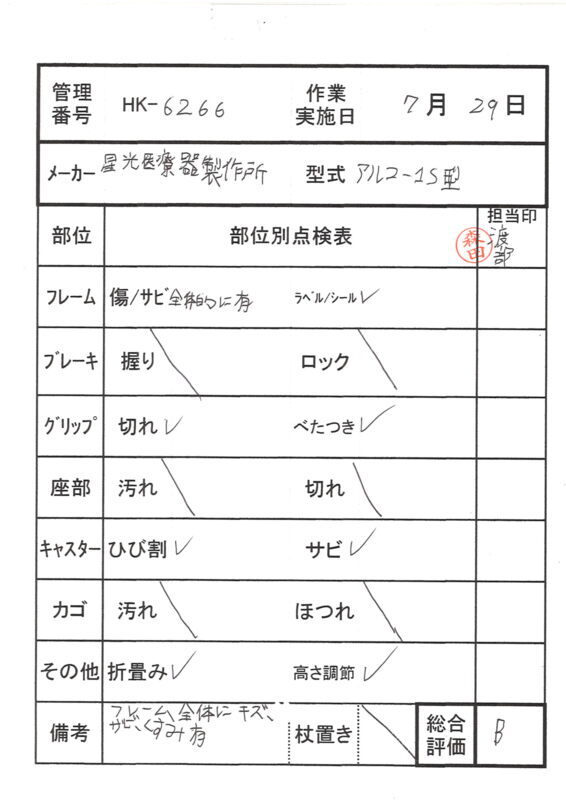 管理番号 HK-6266 作業実施日 7月 29日
メーカー 星光医療器製作所 型式 アルコー1S型
部位 部位別点検表 担当印 森田 渡部
フレーム 傷/サビ 全体的に有 ラベル/シール ✓
ブレーキ 握り ロック
グリップ 切れ ✓ べたつき ✓
座部 汚れ 切れ
キャスター ひび割 ✓ サビ ✓
カゴ 汚れ ほつれ
その他 折畳み ✓ 高さ調節 ✓
備考 フレーム、全体にキズ、
サビ、くすみ有
杖置き 総合評価 B